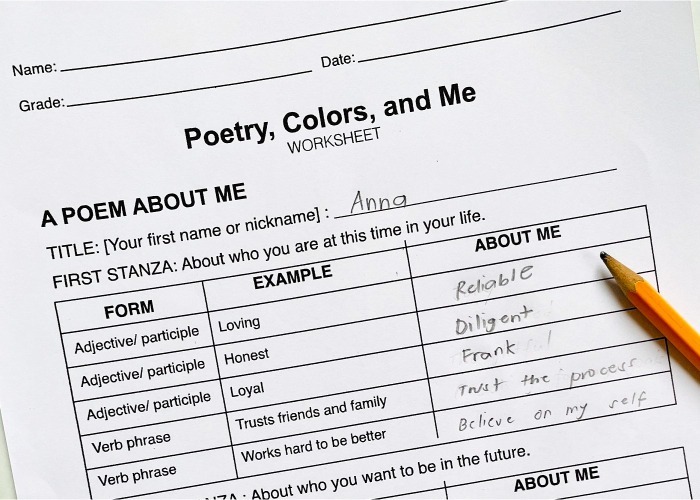 Name:
Date:
Grade:
Poetry, Colors, and Me
WORKSHEET
A POEM ABOUT ME
TITLE: [Your first name or nickname] : Anna
FIRST STANZA: About who you are at this time in your life.
FORM EXAMPLE ABOUT ME
Adjective/ participle Loving Reliable
Adjective/ participle Honest Diligent
Adjective/ participle Loyal Frank
Verb phrase Trusts friends and family Trust the process
Verb phrase Works hard to be better Believe on my self
: About who you want to be in the future.
ABOUT ME